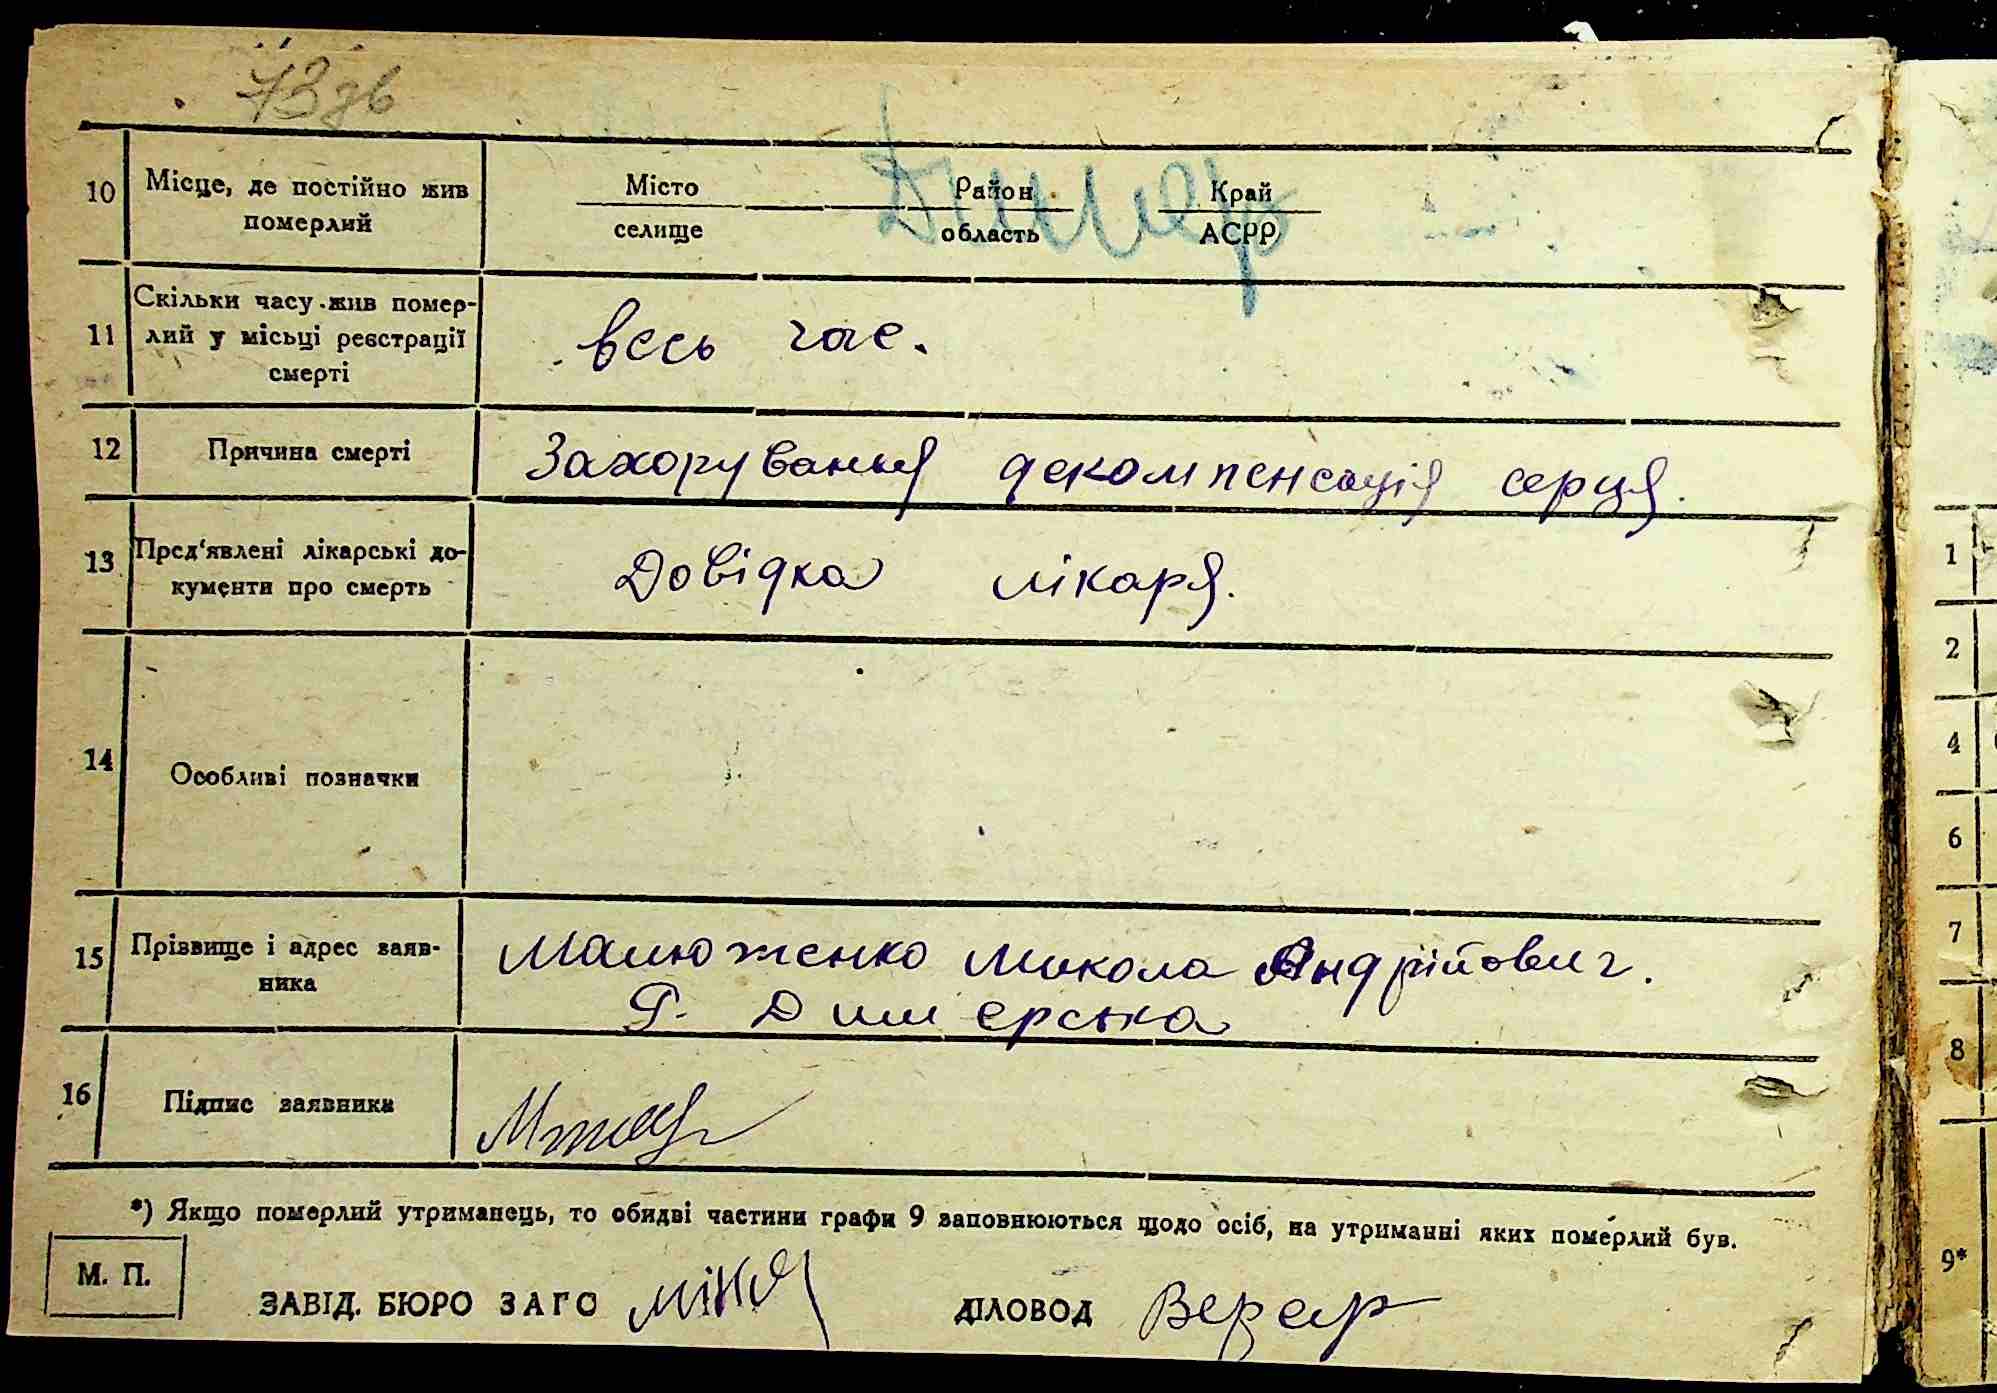 73 зв
10 Місце, де постійно жив померлий
Місто Район Край
селище область АСРР
Димер
11 Скільки часу жив помер-
лий у місьці реєстрації
смерті
весь час.
12 Причина смерті Захорування декомпенсація серця.
13 Пред'явлені лікарські до-
кументи про смерть
Довідка лікаря.
14 Особливі позначки
15 Прізвище і адрес заяв-
ника
Малюженко Микола Андрійович.
Димерська
16 Підпис заявника
*) Якщо померлий утриманець, то обидві частини графи 9 заповнюються щодо осіб, на утриманні яких померлий був.
М. П.
ЗАВІД. БЮРО ЗАГС ДІЛОВОД
1
2
4
6
7
8
9*